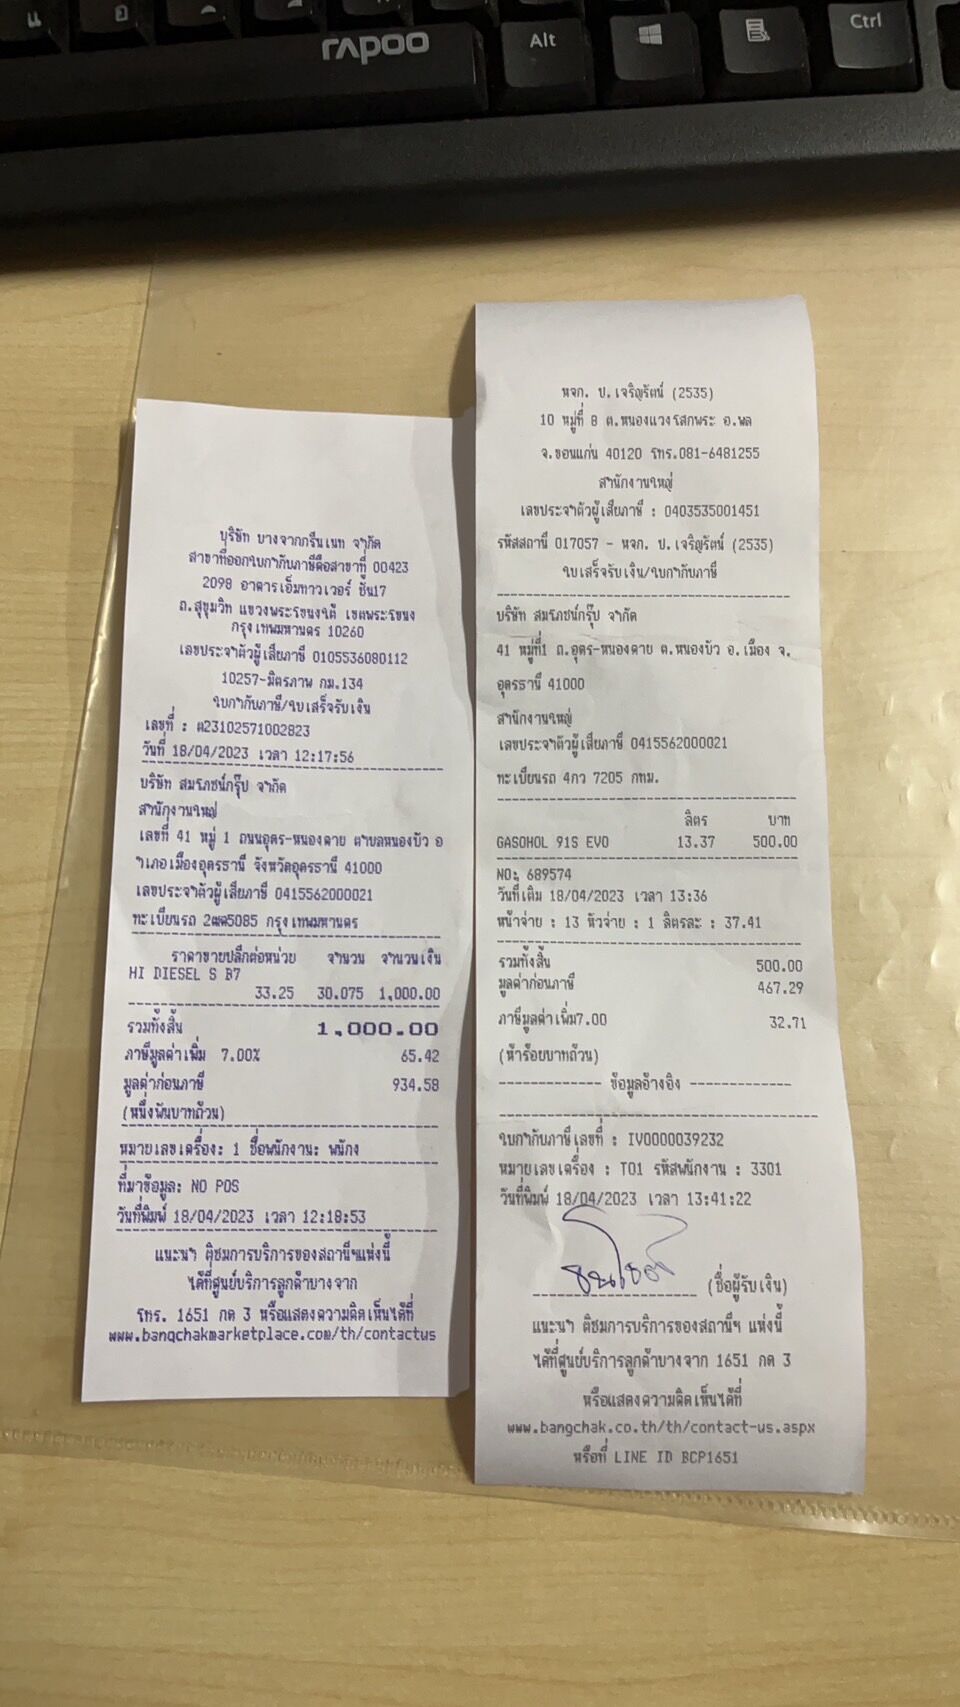 แ
อ
rapoo
Alt
Ctrl
บริษัท บางจากกรีนเนท จำกัด
สาขาที่ออกใบกำกับภาษีคือสาขาที่ 00423
2098 อาคารเอ็มทาวเวอร์ ชั้น17
ถ.สุขุมวิท แขวงพระโขนงใต้ เขตพระโขนง
กรุงเทพมหานคร 10260
เลขประจำตัวผู้เสียภาษี 0105536080112
10257-มิตรภาพ กม.134
ใบกำกับภาษี/ใบเสร็จรับเงิน
เลขที่ : ต23102571002823
วันที่ 18/04/2023 เวลา 12:17:56
บริษัท สมโภชน์กรุ๊ป จำกัด
สำนักงานใหญ่
เลขที่ 41 หมู่ 1 ถนนอุดร-หนองคาย ตำบลหนองบัว อ
ำเภอเมืองอุดรธานี จังหวัดอุดรธานี 41000
เลขประจำตัวผู้เสียภาษี 0415562000021
ทะเบียนรถ 2ฒฒ5085 กรุงเทพมหานคร
ราคาขายปลีกต่อหน่วย จำนวน จำนวนเงิน
HI DIESEL S B7
33.25 30.075 1,000.00
รวมทั้งสิ้น 1,000.00
ภาษีมูลค่าเพิ่ม 7.00% 65.42
มูลค่าก่อนภาษี 934.58
(หนึ่งพันบาทถ้วน)
หมายเลขเครื่อง: 1 ชื่อพนักงาน: พนักง
ที่มาข้อมูล: NO POS
วันที่พิมพ์ 18/04/2023 เวลา 12:18:53
แนะนำ ติชมการบริการของสถานีฯแห่งนี้
ได้ที่ศูนย์บริการลูกค้าบางจาก
โทร. 1651 กด 3 หรือแสดงความคิดเห็นได้ที่
www.bangchakmarketplace.com/th/contactus
หจก. ป.เจริญรัตน์ (2535)
10 หมู่ที่ 8 ต.หนองแวงโสกพระ อ.พล
จ.ขอนแก่น 40120 โทร.081-6481255
สำนักงานใหญ่
เลขประจำตัวผู้เสียภาษี : 0403535001451
รหัสสถานี 017057 - หจก. ป.เจริญรัตน์ (2535)
ใบเสร็จรับเงิน/ใบกำกับภาษี
บริษัท สมโภชน์กรุ๊ป จำกัด
41 หมู่ที่1 ถ.อุดร-หนองคาย ต.หนองบัว อ.เมือง จ.
อุดรธานี 41000
สำนักงานใหญ่
เลขประจำตัวผู้เสียภาษี 0415562000021
ทะเบียนรถ 4กว 7205 กทม.
ลิตร บาท
GASOHOL 91S EVO 13.37 500.00
NO: 689574
วันที่เติม 18/04/2023 เวลา 13:36
หน้าจ่าย : 13 หัวจ่าย : 1 ลิตรละ : 37.41
รวมทั้งสิ้น 500.00
มูลค่าก่อนภาษี 467.29
ภาษีมูลค่าเพิ่ม7.00 32.71
(ห้าร้อยบาทถ้วน)
ข้อมูลอ้างอิง
ใบกำกับภาษีเลขที่ : IV0000039232
หมายเลขเครื่อง : T01 รหัสพนักงาน : 3301
วันที่พิมพ์ 18/04/2023 เวลา 13:41:22
(ชื่อผู้รับเงิน)
แนะนำ ติชมการบริการของสถานีฯ แห่งนี้
ได้ที่ศูนย์บริการลูกค้าบางจาก 1651 กด 3
หรือแสดงความคิดเห็นได้ที่
www.bangchak.co.th/th/contact-us.aspx
หรือที่ LINE ID BCP1651